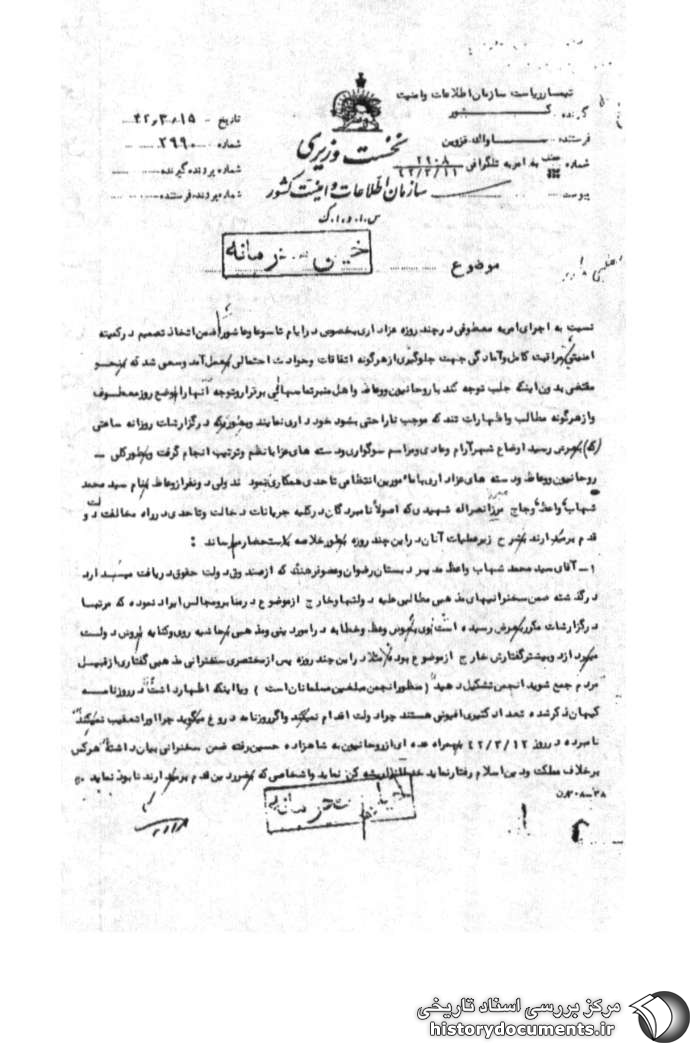 تیمسار ریاست سازمان اطلاعات و امنیت
گیرنده کشور
فرستنده ساواک قزوین
شماره عطف به امریه تلگرافی ۲۹۰۸
۴۲/۳/۱۱
پیوست
نخست وزیری
سازمان اطلاعات و امنیت کشور
س.ا.و.ا.ک
تاریخ ۴۲/۳/۱۵
شماره ۲۹۹۰
شماره پرونده گیرنده
شماره پرونده فرستنده
خیلی محرمانه
موضوع
نسبت به اجرای امریه معطوفی در چند روزه عزاداری بخصوص در ایام تاسوعا و عاشورا ضمن اتخاذ تصمیم در کمیته
امنیتی مراقبت کامل و آمادگی جهت جلوگیری از هرگونه اتفاقات و حوادث احتمالی بعمل آمد و سعی شد که بنحو
مقتضی بدون اینکه جلب توجه کند با روحانیون و وعاظ و اهل منبر تماسهائی برقرار و توجه آنها را بوضع روز معطوف
و از هرگونه مطالب و اظهارات تند که موجب ناراحتی بشود خودداری نمایند و بطوریکه در گزارشات روزانه ساعتی
بعرض رسید اوضاع شهر آرام و عادی و مراسم سوگواری و دسته های عزا با نظم و ترتیب انجام گرفت و بطور کلی –
روحانیون و وعاظ و دسته های عزاداری با مامورین انتظامی تا حدی همکاری نمودند ولی دو نفر از وعاظ بنام سید محمد
شهاب واعظ و حاج میرزا نصراله شهیدی که اصولاً نامبردگان در کلیه جریانات دخالت و تا حدی در راه مخالفت دولت
قدم برمیدارند بشرح زیر عملیات آنان در این چند روزه بطور خلاصه باستحضار میرساند :
۱– آقای سید محمد شهاب واعظ مدیر دبستان رضوان و عضو فرهنگ که از صندوق دولت حقوق دریافت میدارد
در گذشته ضمن سخنرانیهای مذهبی مطالبی علیه دولتها و خارج از موضوع در منابر و مجالس ایراد نموده که مرتبا
در گزارشات مکرر بعرض رسیده است بعوض وعظ و خطابه در امور دینی و مذهبی بحاشیه روی و کنایه بروش دولت
میپردازد و بیشتر گفتارش خارج از موضوع بوده مثلا در این چند روزه پس از مختصری سخنرانی مذهبی گفتاری از قبیل
مردم جمع شوید انجمن تشکیل دهید ( منظور انجمن مبلغین مسلمانان است ) و یا اینکه اظهار داشت در روزنامه
کیهان ذکر شده تعداد کثیری افیونی هستند چرا دولت اقدام نمیکند و اگر روزنامه دروغ میگوید چرا او را تعقیب نمیکند
نامبرده در روز ۴۲/۳/۱۲ بهمراه عده ای از روحانیون به شاهزاده حسین رفته ضمن سخنرانی بیان داشته هرکس
برخلاف مملکت و دین اسلام رفتار نماید خدا ریشه کن نماید و اشخاصی که بضرر دین قدم برمیدارند نابود نماید
خیلی محرمانه
مرکز بررسی اسناد تاریخی
historydocuments.ir